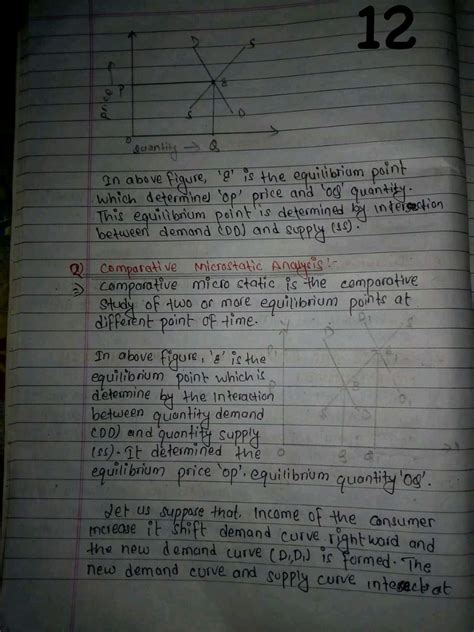 12
D S
P
E
price →
S D
O Quantity → Q
In above figure, 'E' is the equilibrium point
which determined 'op' price and 'OQ' quantity.
This equilibrium point is determined by intersection
between demand (DD) and supply (SS).
2) Comparative Microstatic Analysis:-
⇒ comparative micro static is the comparative
study of two or more equilibrium points at
different point of time.
In above figure, 'E' is the
equilibrium point which is
determine by the Interaction
between quantity demand
(DD) and quantity supply
(SS). It determined the
equilibrium price 'op'. equilibrium quantity 'OQ'.
Let us suppose that, Income of the consumer
increase it shift demand curve rightword and
the new demand curve (D1D1) is formed. The
new demand curve and supply curve intersect at